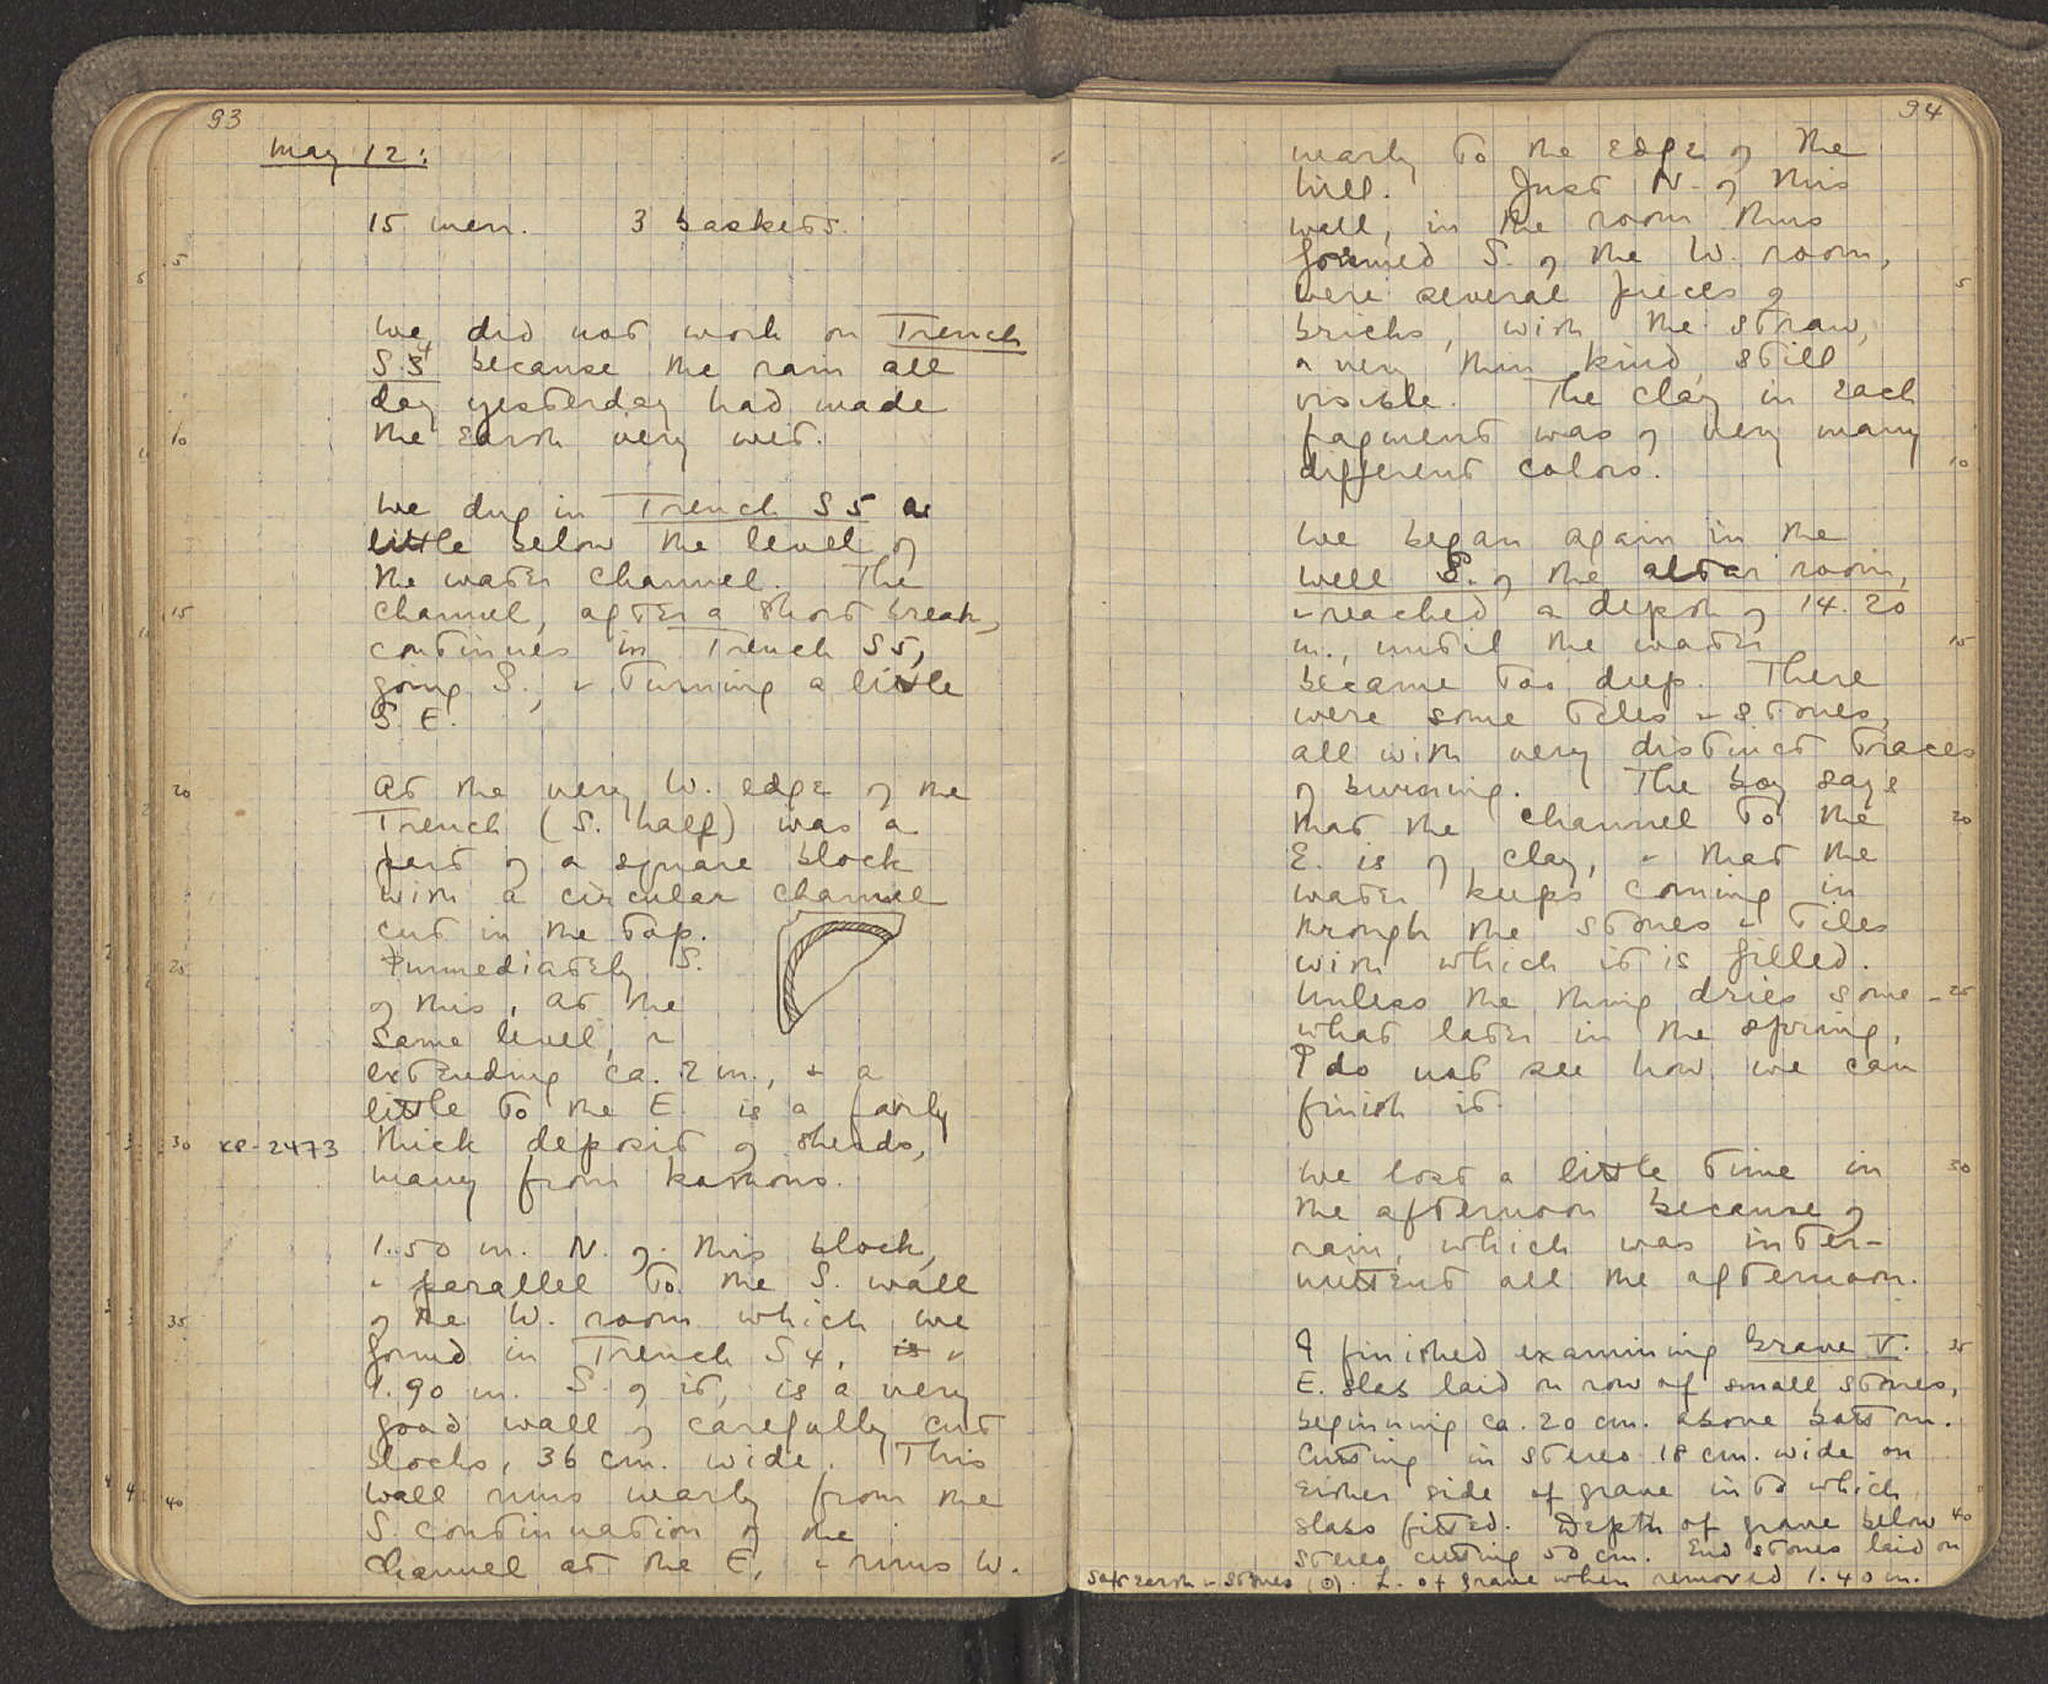 93
May 12:
15 men. 3 baskets.
We did not work on Trench
S 4 because the rain all
day yesterday had made
the earth very wet.
We dug in Trench S5 a
little below the level of
the water channel. The
channel, after a short break,
continues in Trench S5,
going S., & turning a little
S.E.
At the very W. edge of the
Trench (S. half) was a
part of a square block
with a circular channel
cut in the top.
Immediately S.
of this, at the
same level, &
extending ca. 2 m., & a
little to the E. is a fairly
KP-2473 thick deposit of sherds,
many from kothons.
1.50 m. N. of this block,
& parallel to the S. wall
of the W. room which we
found in Trench S4, is &
1.90 m. S. of it, is a very
good wall of carefully cut
blocks, 36 cm. wide. This
wall runs nearly from the
S. continuation of the
channel at the E, & runs W.
94
nearly to the edge of the
hill. Just N. of this
wall, in the room thus
formed S. of the W. room,
were several pieces of
bricks, with the straw,
a very thin kind, still
visible. The clay in each
fragment was of very many
different colors.
We began again in the
well S. of the altar room,
& reached a depth of 14.20
m., until the water
became too deep. There
were some tiles & stones,
all with very distinct traces
of burning. The boy says
that the channel to the
E. is of clay, & that the
water keeps coming in
through the stones & tiles
with which it is filled.
Unless the thing dries some-
what later in the spring,
I do not see how we can
finish it.
We lost a little time in
the afternoon because of
rain, which was inter-
mittent all the afternoon.
I finished examining Grave V.
E. slab laid on row of small stones,
beginning ca. 20 cm. above bottom.
Cutting in stereo 18 cm. wide on
either side of grave into which
slabs fitted. Depth of grave below
stereo cutting 50 cm. End stones laid on
soft earth & stones (?). L. of grave when removed 1.40 m.
5
10
15
20
25
30
35
40
5
10
15
20
25
30
35
40